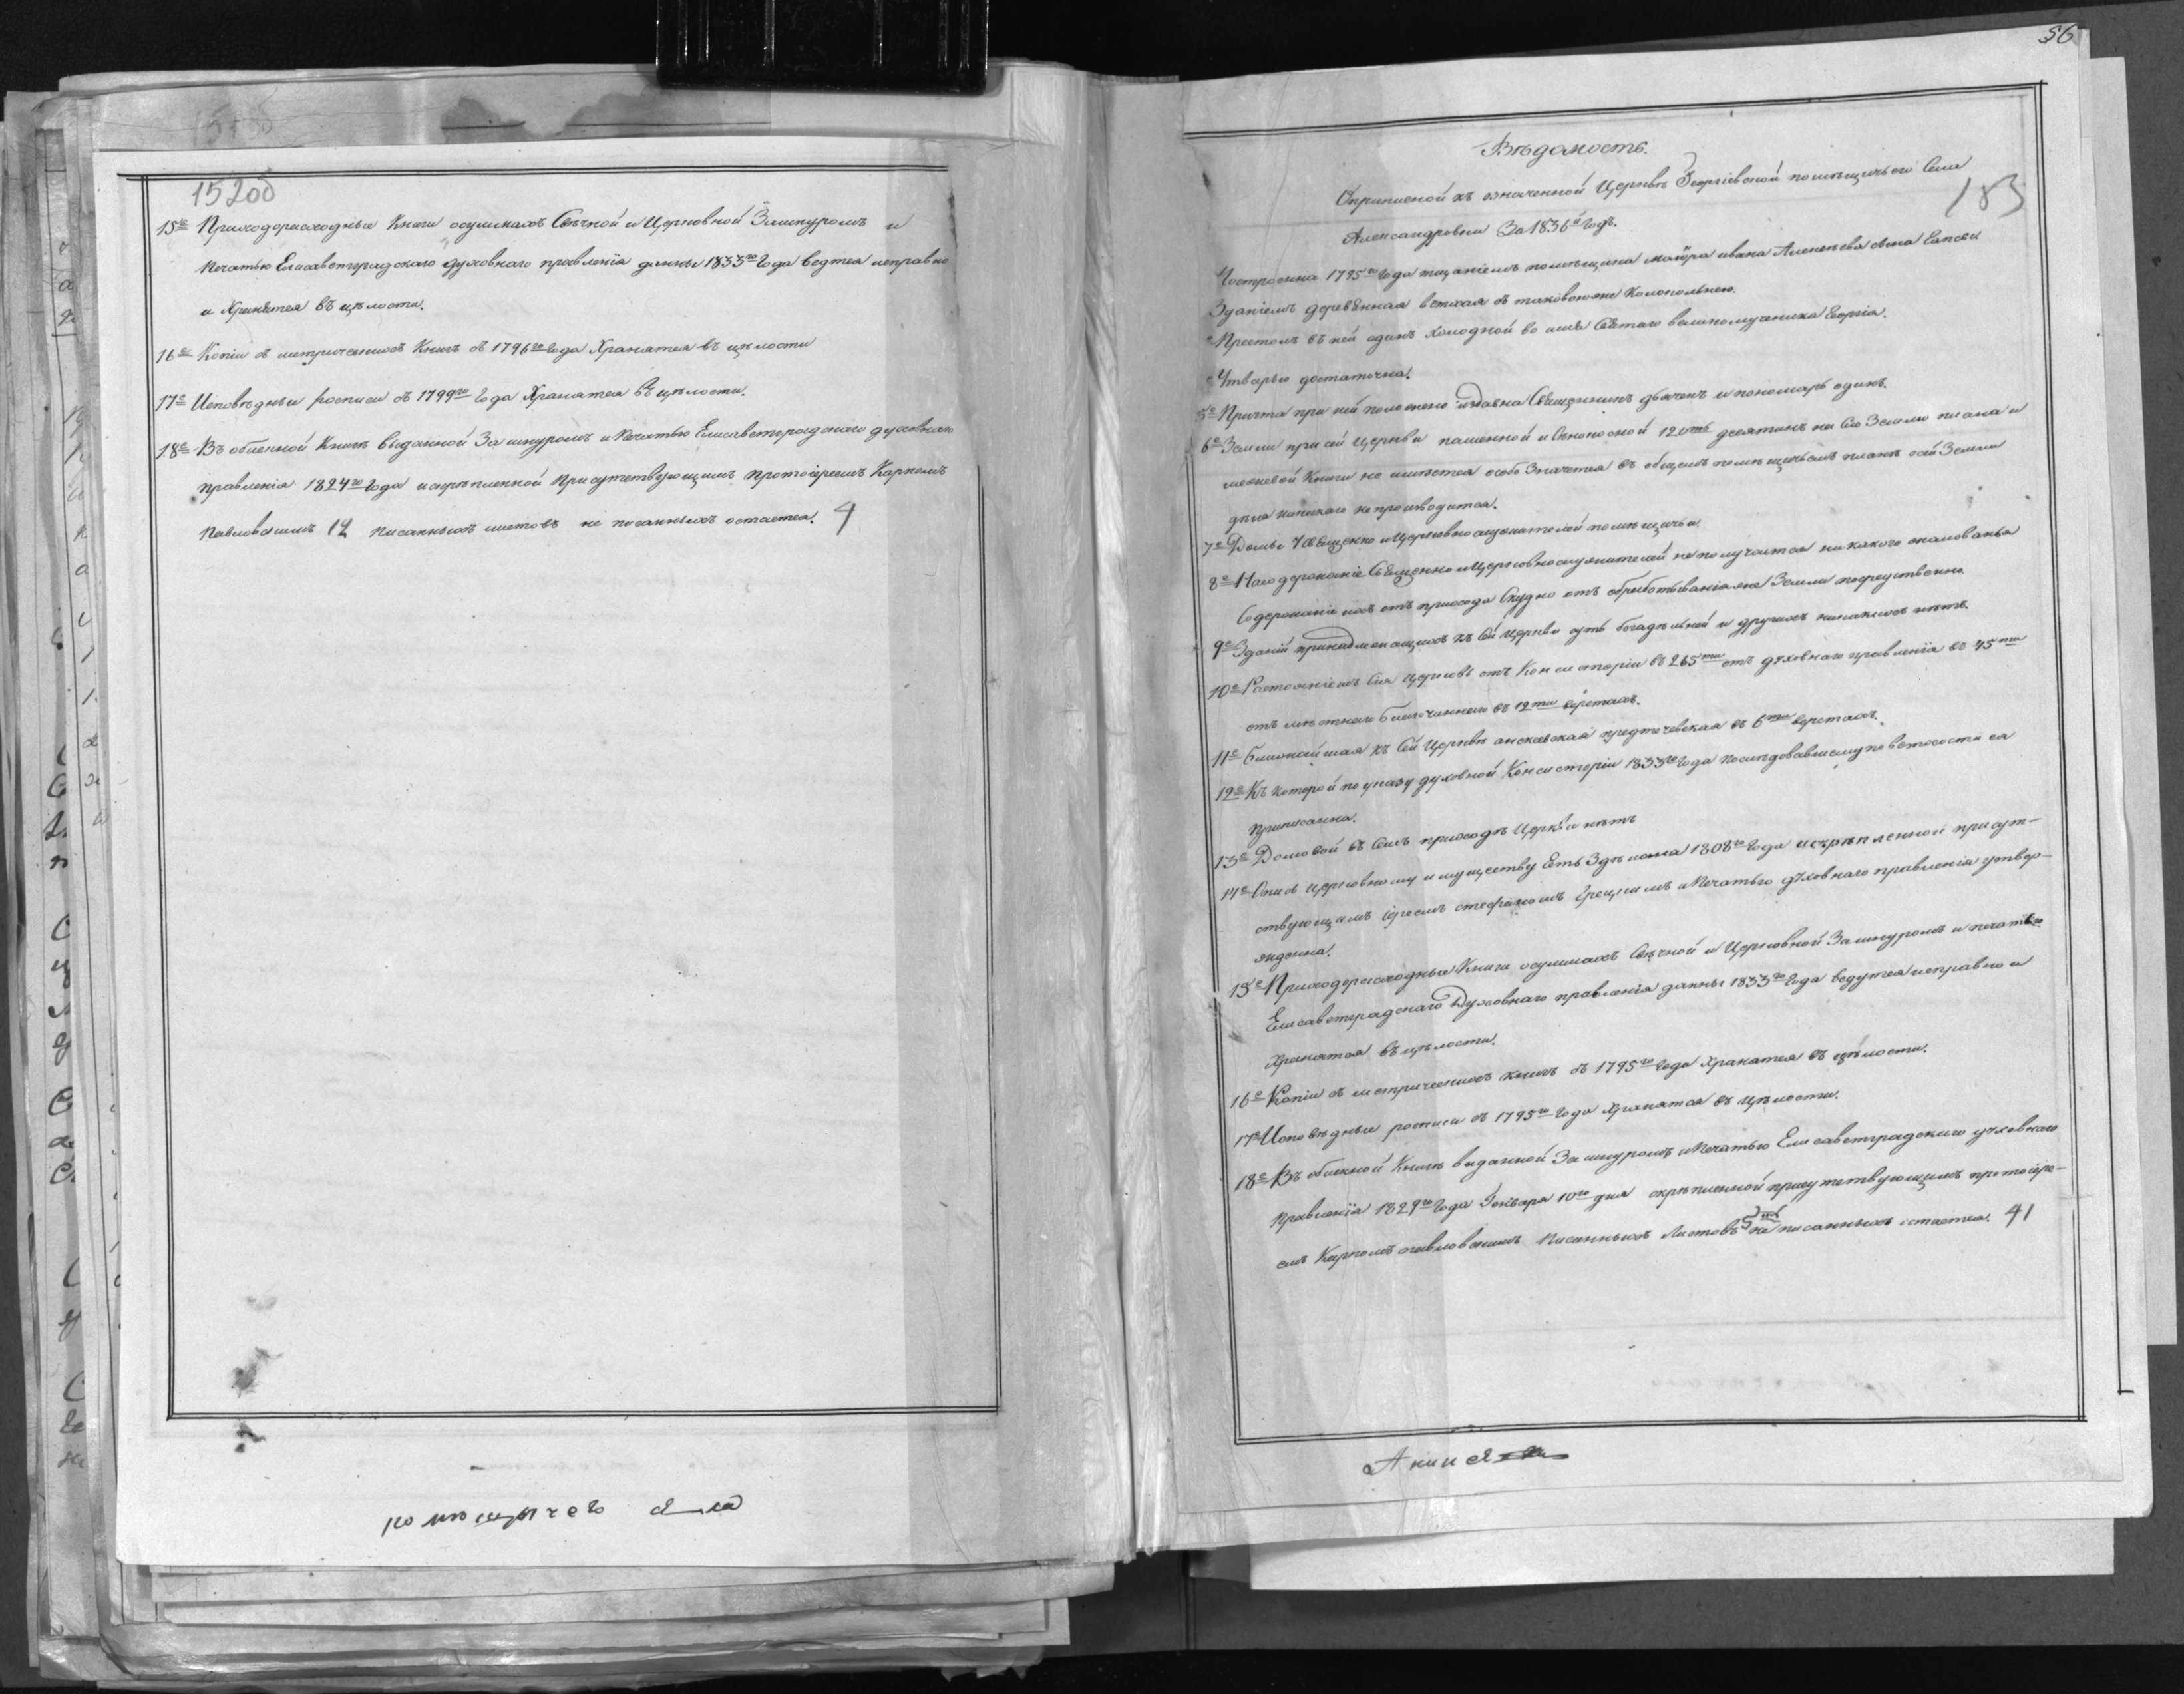 152об
15е Приходорасходныя Книги осуммахъ Свѣчной и Церковной Зашнуромъ и
Печатью Елисаветградскаго духовнаго правленія данныя 1833го Года ведтся исправно
и Хранятся въ цѣлости.
16е Копіи съ метрическихъ Книгъ съ 1796го Года Хранятся въ цѣлости
17е Исповѣдныя росписи съ 1799го Года Хранятся въ цѣлости.
18е Въ обыскной Книгѣ выданной За шнуромъ и Печатью Елисаветградскаго духовнаго
правленія 1824го Года искрѣпленной Присутствующимъ Протоіереемъ Карпомъ
Павловскимъ 12 писанныхъ листовъ не писанныхъ остается. 4
помѣщичего села
56
Вѣдомость.
Оприписной къ означенной Церквѣ Георгіевской помѣщичьего Села
183
Александровки За 1836й Годъ.
Построенна 1795го Года тщаніемъ помѣщика маіора ивана Алексѣева сына
Зданіемъ деревянная ветхая съ таковоюже Колокольнею.
Престолъ въ ней одинъ холодной во имя Святаго великомученика Георгія.
Утварью достаточна.
5е Причта при ней положено издавна Священникъ дьячекъ и пономарь одинъ.
6е Земли при сей Церкви пашенной и Сѣнокосной 120ть десятинъ на Сію Землю плана и
межевой Книги не имѣется особо Значется въ общемъ помѣщичьемъ планѣ осей Земли
дѣла никакаго непроизводится.
7е Домы Священно иЦерковнослужителей помѣщичьи.
8е Насодержаніе Священно иЦерковнослужителей не получается никакого жалованья
Содержаніе ихъ отъ прихода Скудно отъ обработыванія же Земли посредственно
9е Зданій принадлежащихъ къ Сей Церкви суть богадѣльней и другихъ никакихъ нѣтъ.
10е Растояніемъ Сія Церковь отъ Консисторіи въ 265ти отъ духовнаго правленія въ 45ти
отъ мѣстнаго Благочиннаго въ 12ти верстахъ.
11е Ближайшая къ Сей Церквѣ предтечевская въ 6ти верстахъ.
12е Къ которой по указу духовной Консисторіи 1833го Года послѣдовавшему по ветхости ея
Приписанна.
13е Домовой въ Семъ приходѣ Церкви нѣтъ
14е Опись Церковному имуществу Есть Здѣ 1808го Года искрѣпленной присут-
ствующимъ іереемъ стефаномъ Грецкимъ иПечатью духовнаго правленія утвер-
жденна.
15е Приходорасходныя Книги осуммахъ Свѣчной и Церковной Зашнуромъ и печатью
Елисаветградскаго Духовнаго правленія данныя 1833го Года ведутся исправно и
Хранятся въ цѣлости.
16е Копіи съ метрическихъ книгъ съ 1795го Года Хранятся въ цѣлости.
17е Исповѣдныя росписи съ 1795го Года Хранятся въ Цѣлости.
18е Въ обыскной Книгѣ выданной За шнуромъ иПечатью Елисаветградскаго духовнаго
Правленія 1829го Года Генваря 10го дня скрѣпленной присутствующимъ протоіере-
емъ Карпомъ павловскимъ Писанныхъ Листовъ 5ть не писанныхъ остается. 41